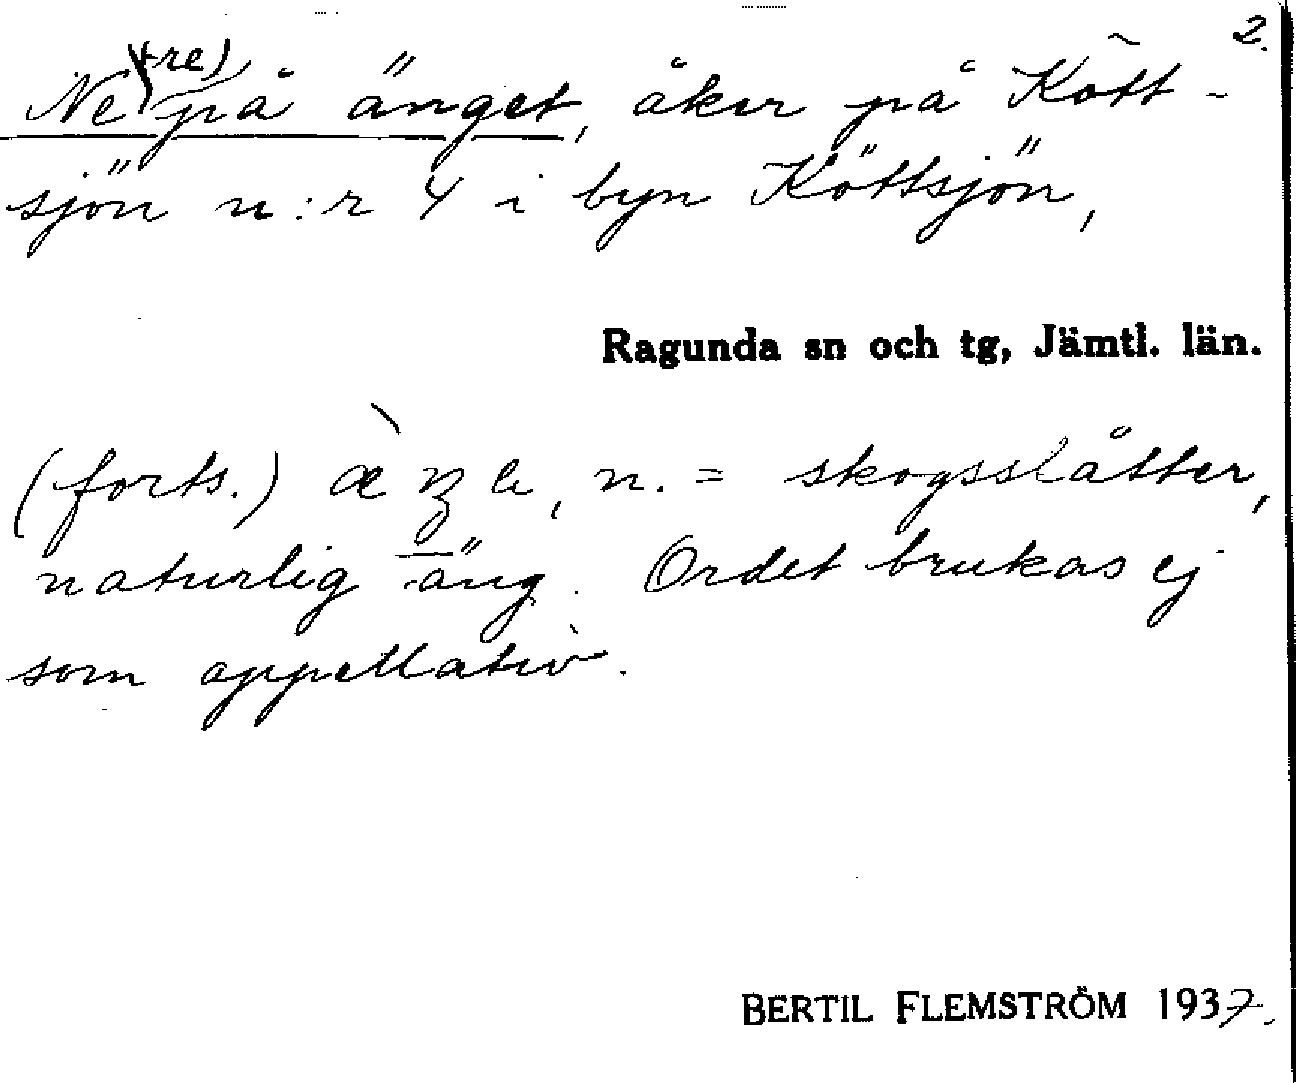 2.
Ne(dre) på änget, åker på Kött-
sjön n:r 4 i byn Köttsjön,
Ragunda sn och tg, Jämtl. län.
(forts.) , n. = skogsslåtter,
naturlig äng. Ordet brukas ej
som appellativ.
BERTIL FLEMSTRÖM 1937.